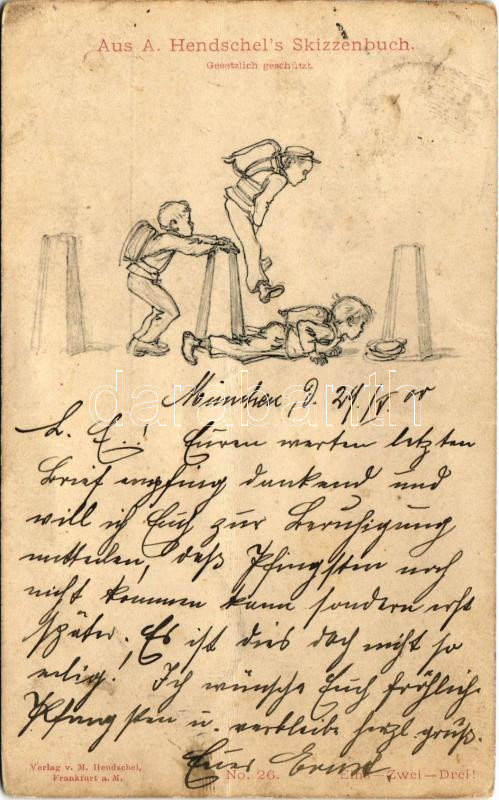 Aus A. Hendschel's Skizzenbuch.
Gesetzlich geschützt.
darabanth
München, d. 29/V. 00
L. E.! Euren werten letzten
Brief empfing dankend und
will ich Euch zur Beruhigung
mitteilen, daß Pfingsten noch
nicht kommen kann sondern erst
später. Es ist dies doch nicht so
eilig! Ich wünsche Euch fröhliche
Pfingsten u. verbleibe herzl. grüß.
Euer Ernst
Verlag v. M. Hendschel,
Frankfurt a. M.
No. 26.
Eins—Zwei—Drei!